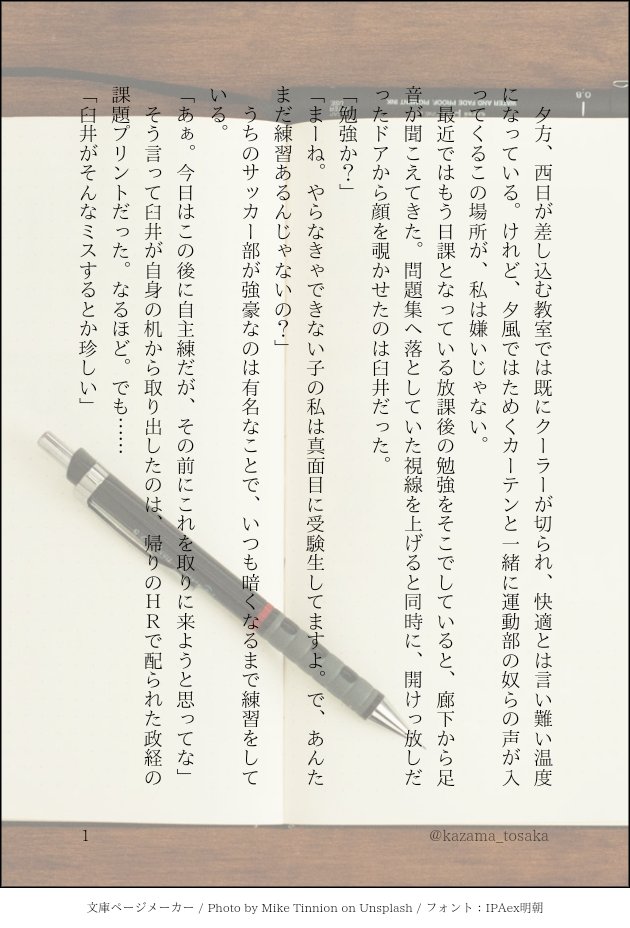 夕方、西日が差し込む教室では既にクーラーが切られ、快適とは言い難い温度
になっている。けれど、夕風ではためくカーテンと一緒に運動部の奴らの声が入
ってくるこの場所が、私は嫌いじゃない。
最近ではもう日課となっている放課後の勉強をそこでしていると、廊下から足
音が聞こえてきた。問題集へ落としていた視線を上げると同時に、開けっ放しだ
ったドアから顔を覗かせたのは臼井だった。
「勉強か？」
「まーね。やらなきゃできない子の私は真面目に受験生してますよ。で、あんた
まだ練習あるんじゃないの？」
うちのサッカー部が強豪なのは有名なことで、いつも暗くなるまで練習をして
いる。
「あぁ。今日はこの後に自主練だが、その前にこれを取りに来ようと思ってな」
そう言って臼井が自身の机から取り出したのは、帰りのＨＲで配られた政経の
課題プリントだった。なるほど。でも……
「臼井がそんなミスするとか珍しい」
WATER AND FADE PROOF, PIGMENT INK
0.8
1
@kazama_tosaka
文庫ページメーカー / Photo by Mike Tinnion on Unsplash / フォント：IPAex明朝